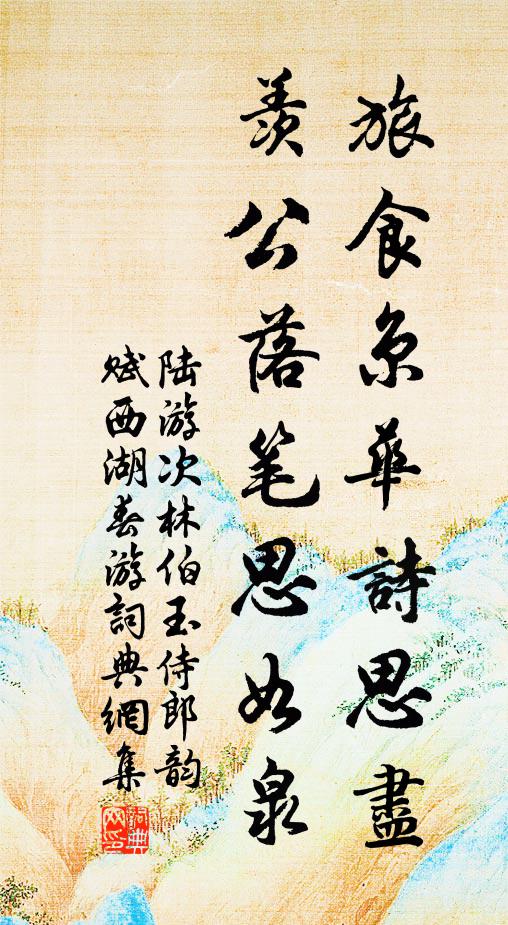 旅食京華詩思盡
羨公落笔思如泉
陆游次林伯玉侍郎韵
赋西湖春游詞典網集
詞典
网印